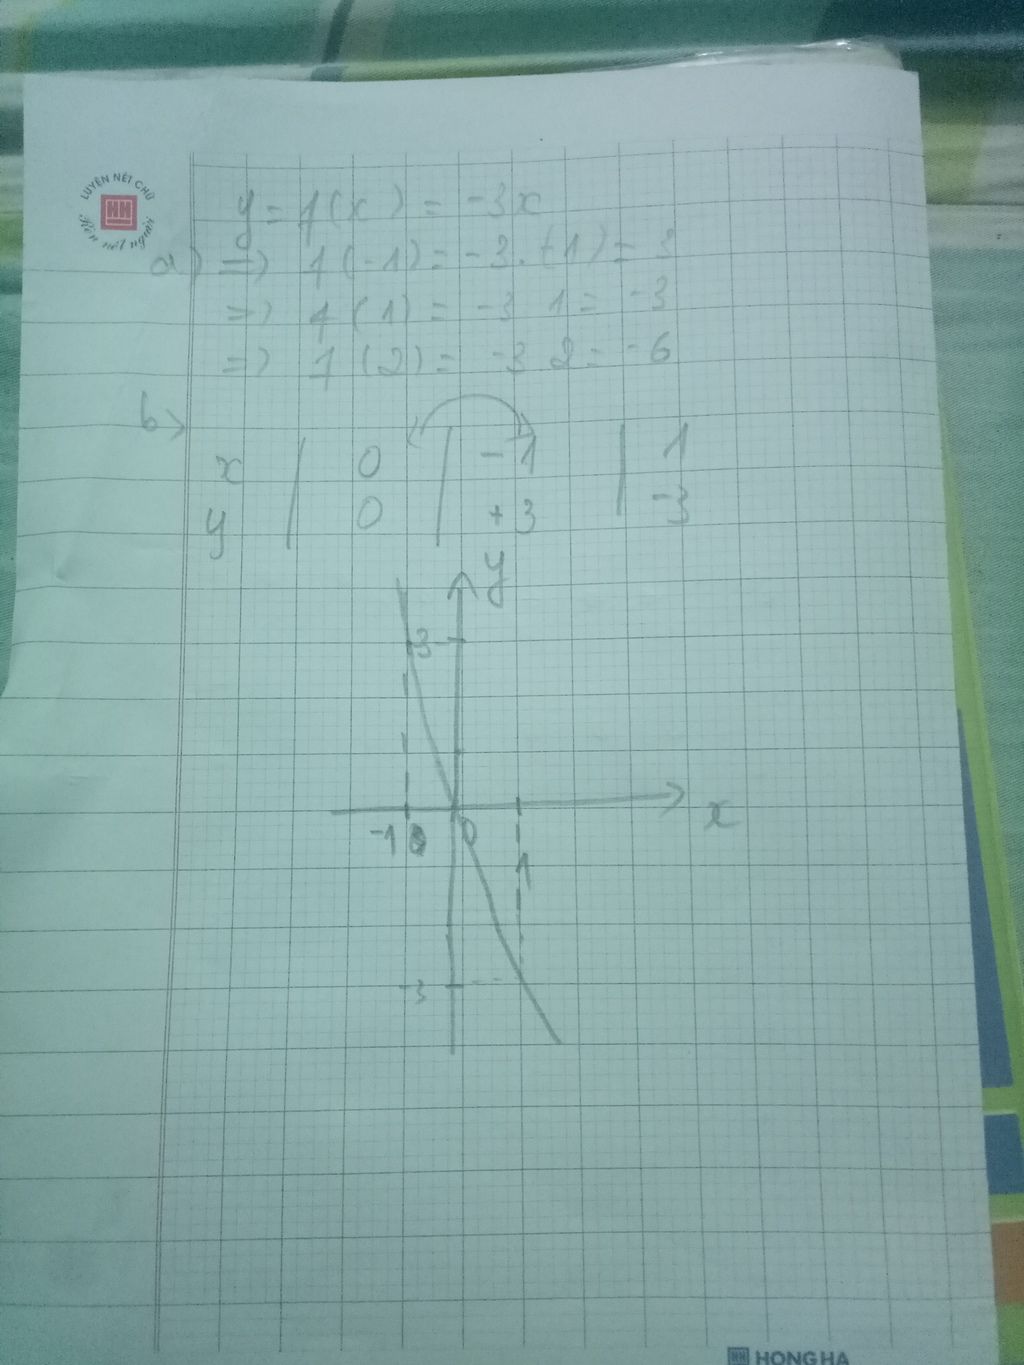 LUYỆN NẾT CHỮ
HH
Rèn nết người
y = f(x) = -3x
a) => f(-1) = -3.(-1) = 3
=> f(1) = -3 1 = -3
=> f(2) = -3 2 = -6
b>
x | 0 | -1 | 1
y | 0 | +3 | -3
y
3
-1 0 x
1
-3
HH HONG HA